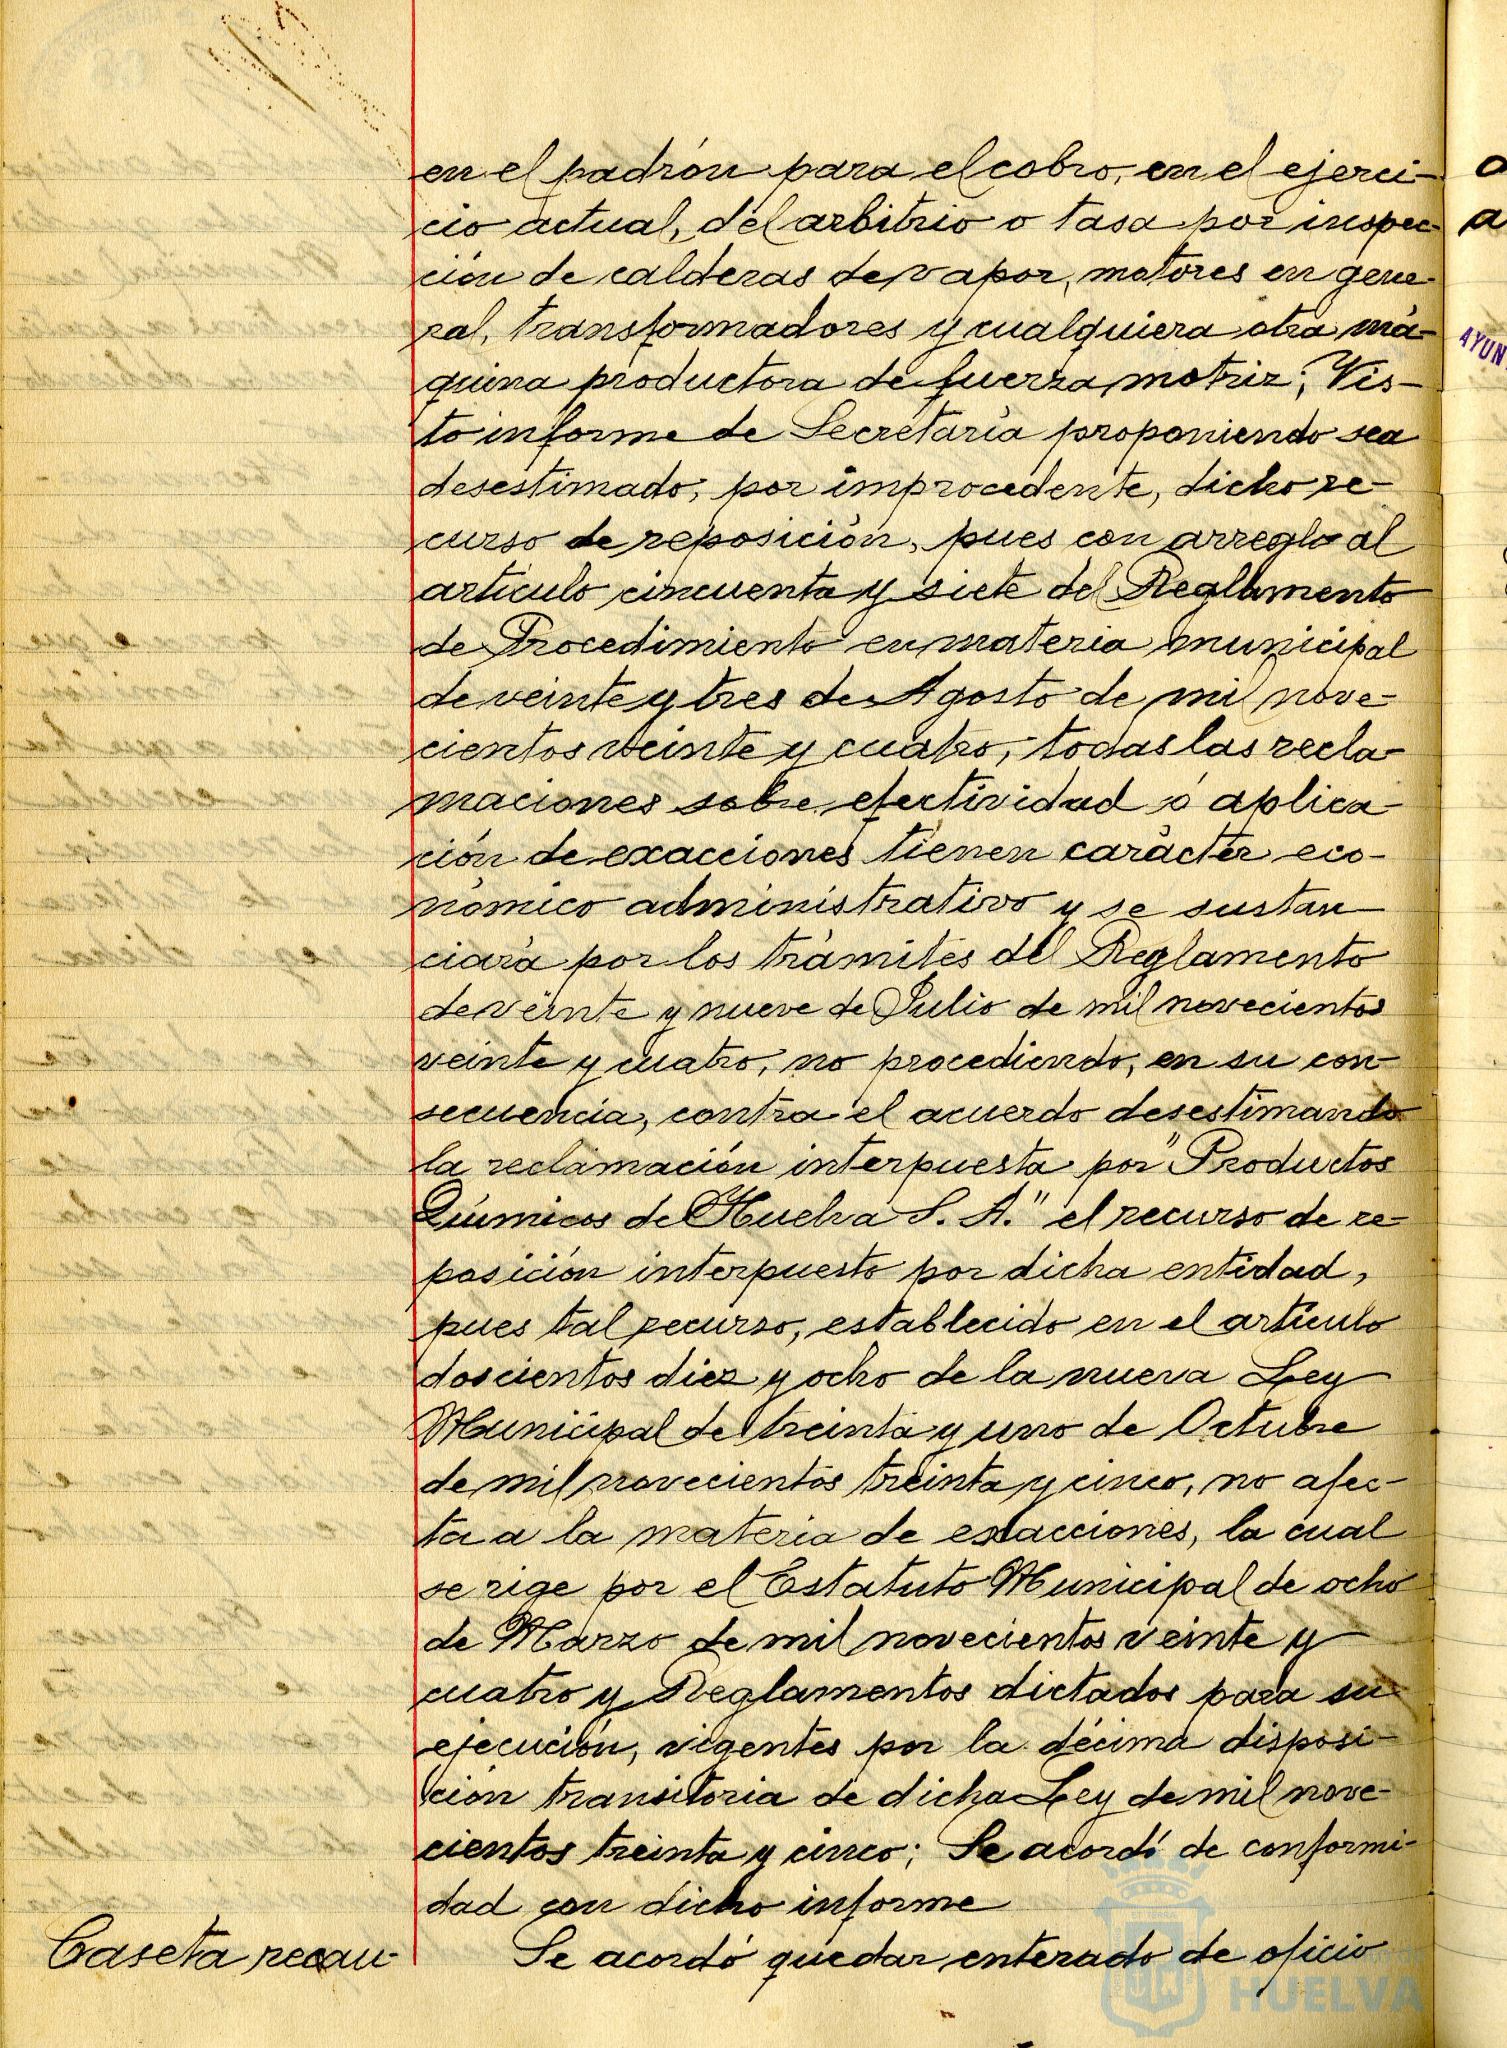 en el padrón para el cobro, en el ejerci-
cio actual, del arbitrio o tasa por inspec-
ción de calderas de vapor, motores en gene-
ral, transformadores y cualquiera otra má-
quina productora de fuerza motriz; Vis-
to informe de Secretaría proponiendo sea
desestimado, por improcedente, dicho re-
curso de reposición, pues con arreglo al
artículo cincuenta y siete del Reglamento
de Procedimiento en materia municipal
de veinte y tres de Agosto de mil nove-
cientos veinte y cuatro, todas las recla-
maciones sobre efectividad ó aplica-
ción de exacciones tienen carácter eco-
nómico administrativo y se sustan-
ciará por los trámites del Reglamento
de veinte y nueve de Julio de mil novecientos
veinte y cuatro, no procediendo, en su con-
secuencia, contra el acuerdo desestimando
la reclamación interpuesta por "Productos
Químicos de Huelva S. A." el recurso de re-
posición interpuesto por dicha entidad,
pues tal recurso, establecido en el artículo
doscientos diez y ocho de la nueva Ley
Municipal de treinta y uno de Octubre
de mil novecientos treinta y cinco, no afec-
ta a la materia de exacciones, la cual
se rige por el Estatuto Municipal de ocho
de Marzo de mil novecientos veinte y
cuatro y Reglamentos dictados para su
ejecución, vigentes por la décima disposi-
ción transitoria de dicha Ley de mil nove-
cientos treinta y cinco; Se acordó de conformi-
dad con dicho informe
Caseta recau-
Se acordó quedar enterado de oficio
HUELVA
AYUN